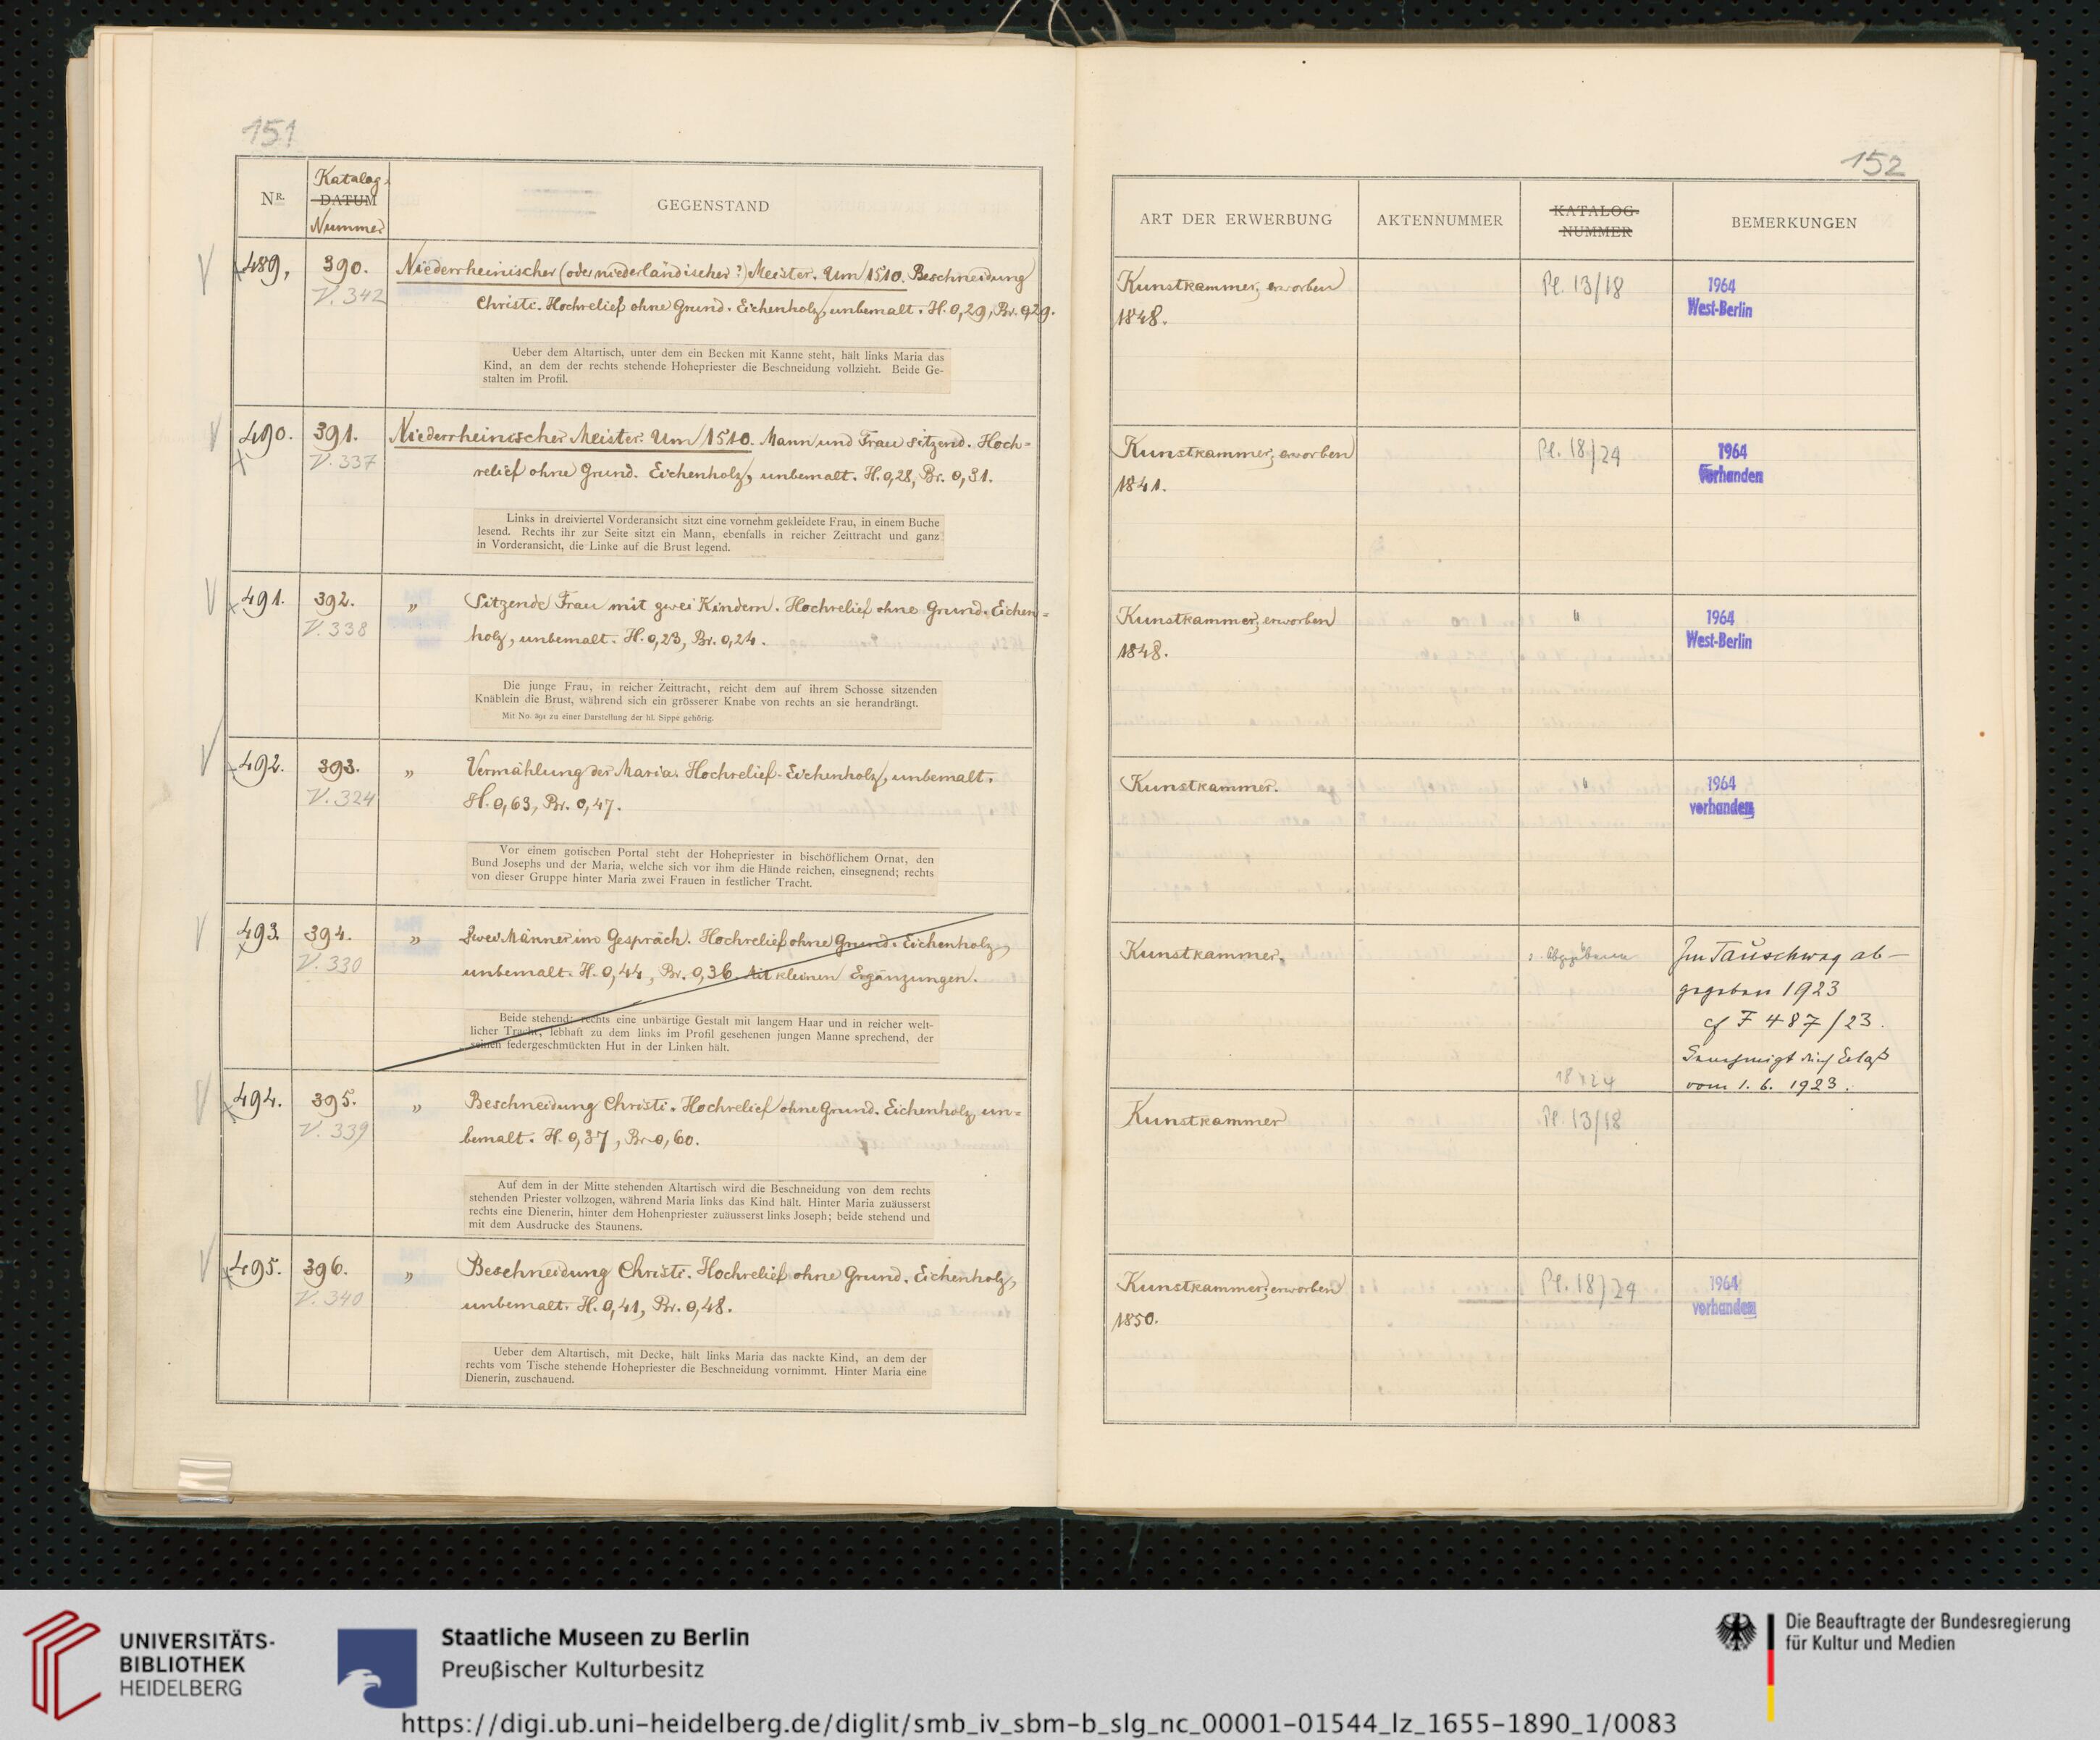 151
NR.
Katalog-
DATUM
Nummer
GEGENSTAND
489.
390.
V. 342
Niederrheinischer (oder niederländischer?) Meister. Um 1510. Beschneidung
Christi. Hochrelief ohne Grund. Eichenholz, unbemalt. H. 0,29, Br. 0,29.
Ueber dem Altartisch, unter dem ein Becken mit Kanne steht, hält links Maria das
Kind, an dem der rechts stehende Hohepriester die Beschneidung vollzieht. Beide Ge-
stalten im Profil.
490.
391.
V. 337
Niederrheinischer Meister. Um 1510. Mann und Frau sitzend. Hoch-
relief ohne Grund. Eichenholz, unbemalt. H. 0,28, Br. 0,31.
Links in dreiviertel Vorderansicht sitzt eine vornehm gekleidete Frau, in einem Buche
lesend. Rechts ihr zur Seite sitzt ein Mann, ebenfalls in reicher Zeittracht und ganz
in Vorderansicht, die Linke auf die Brust legend.
491.
392.
V. 338
" Sitzende Frau mit zwei Kindern. Hochrelief ohne Grund. Eichen-
holz, unbemalt. H. 0,23, Br. 0,24.
Die junge Frau, in reicher Zeittracht, reicht dem auf ihrem Schosse sitzenden
Knäblein die Brust, während sich ein grösserer Knabe von rechts an sie herandrängt.
Mit No. 391 zu einer Darstellung der hl. Sippe gehörig.
492.
393.
V. 324
" Vermählung der Maria. Hochrelief. Eichenholz, unbemalt.
H. 0,63, Br. 0,47.
Vor einem gotischen Portal steht der Hohepriester in bischöflichem Ornat, den
Bund Josephs und der Maria, welche sich vor ihm die Hände reichen, einsegnend; rechts
von dieser Gruppe hinter Maria zwei Frauen in festlicher Tracht.
493.
394.
V. 330
" Zwei Männer im Gespräch. Hochrelief ohne Grund. Eichenholz,
unbemalt. H. 0,44, Br. 0,36. Mit kleinen Ergänzungen.
Beide stehend; rechts eine unbärtige Gestalt mit langem Haar und in reicher welt-
licher Tracht, lebhaft zu dem links im Profil gesehenen jungen Manne sprechend, der
seinen federgeschmückten Hut in der Linken hält.
494.
395.
V. 339
" Beschneidung Christi. Hochrelief ohne Grund. Eichenholz, un-
bemalt. H. 0,37, Br. 0,60.
Auf dem in der Mitte stehenden Altartisch wird die Beschneidung von dem rechts
stehenden Priester vollzogen, während Maria links das Kind hält. Hinter Maria zuäusserst
rechts eine Dienerin, hinter dem Hohenpriester zuäusserst links Joseph; beide stehend und
mit dem Ausdrucke des Staunens.
495.
396.
V. 340
" Beschneidung Christi. Hochrelief ohne Grund. Eichenholz,
unbemalt. H. 0,41, Br. 0,48.
Ueber dem Altartisch, mit Decke, hält links Maria das nackte Kind, an dem der
rechts vom Tische stehende Hohepriester die Beschneidung vornimmt. Hinter Maria eine
Dienerin, zuschauend.
152
ART DER ERWERBUNG
AKTENNUMMER
KATALOG-
NUMMER
BEMERKUNGEN
Kunstkammer, erworben
1848.
Pl. 13/18
1964
West-Berlin
Kunstkammer, erworben
1841.
Pl. 18/24
1964
Vorhanden
Kunstkammer, erworben
1848.
"
1964
West-Berlin
Kunstkammer.
"
1964
vorhanden
Kunstkammer.
"
abgegeben
18 x 24
Im Tauschweg ab-
gegeben 1923
cf F 487/23.
Genehmigt durch Erlaß
vom 1. 6. 1923.
Kunstkammer
Pl. 13/18
Kunstkammer, erworben
1850.
Pl. 18/24
1964
vorhanden
UNIVERSITÄTS-
BIBLIOTHEK
HEIDELBERG
Staatliche Museen zu Berlin
Preußischer Kulturbesitz
Die Beauftragte der Bundesregierung
für Kultur und Medien
https://digi.ub.uni-heidelberg.de/diglit/smb_iv_sbm-b_slg_nc_00001-01544_lz_1655-1890_1/0083